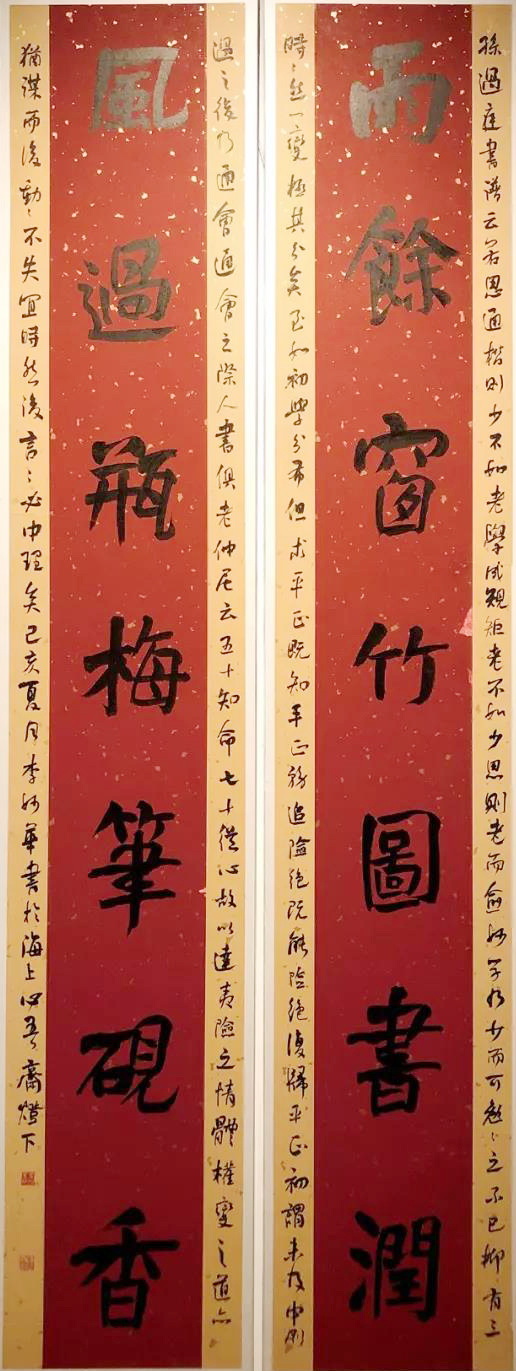 孫過庭書譜云若思通楷則少不如老學成規矩老不如少思則老而愈妙學乃少而可勉〻之不已抑有三
雨餘窗竹圖書潤
時〻然一變極其分矣至如初學分布但求平正既知平正務追險絕既能險絕復歸平正初謂未及中則
過之後乃通會通會之際人書俱老仲尼云五十知命七十從心故以達夷險之情體權變之道亦
風過瓶梅筆硯香
猶謀而後動〻不失宜時然後言〻必中理矣己亥夏月李妙華書於海上心吾齋燈下